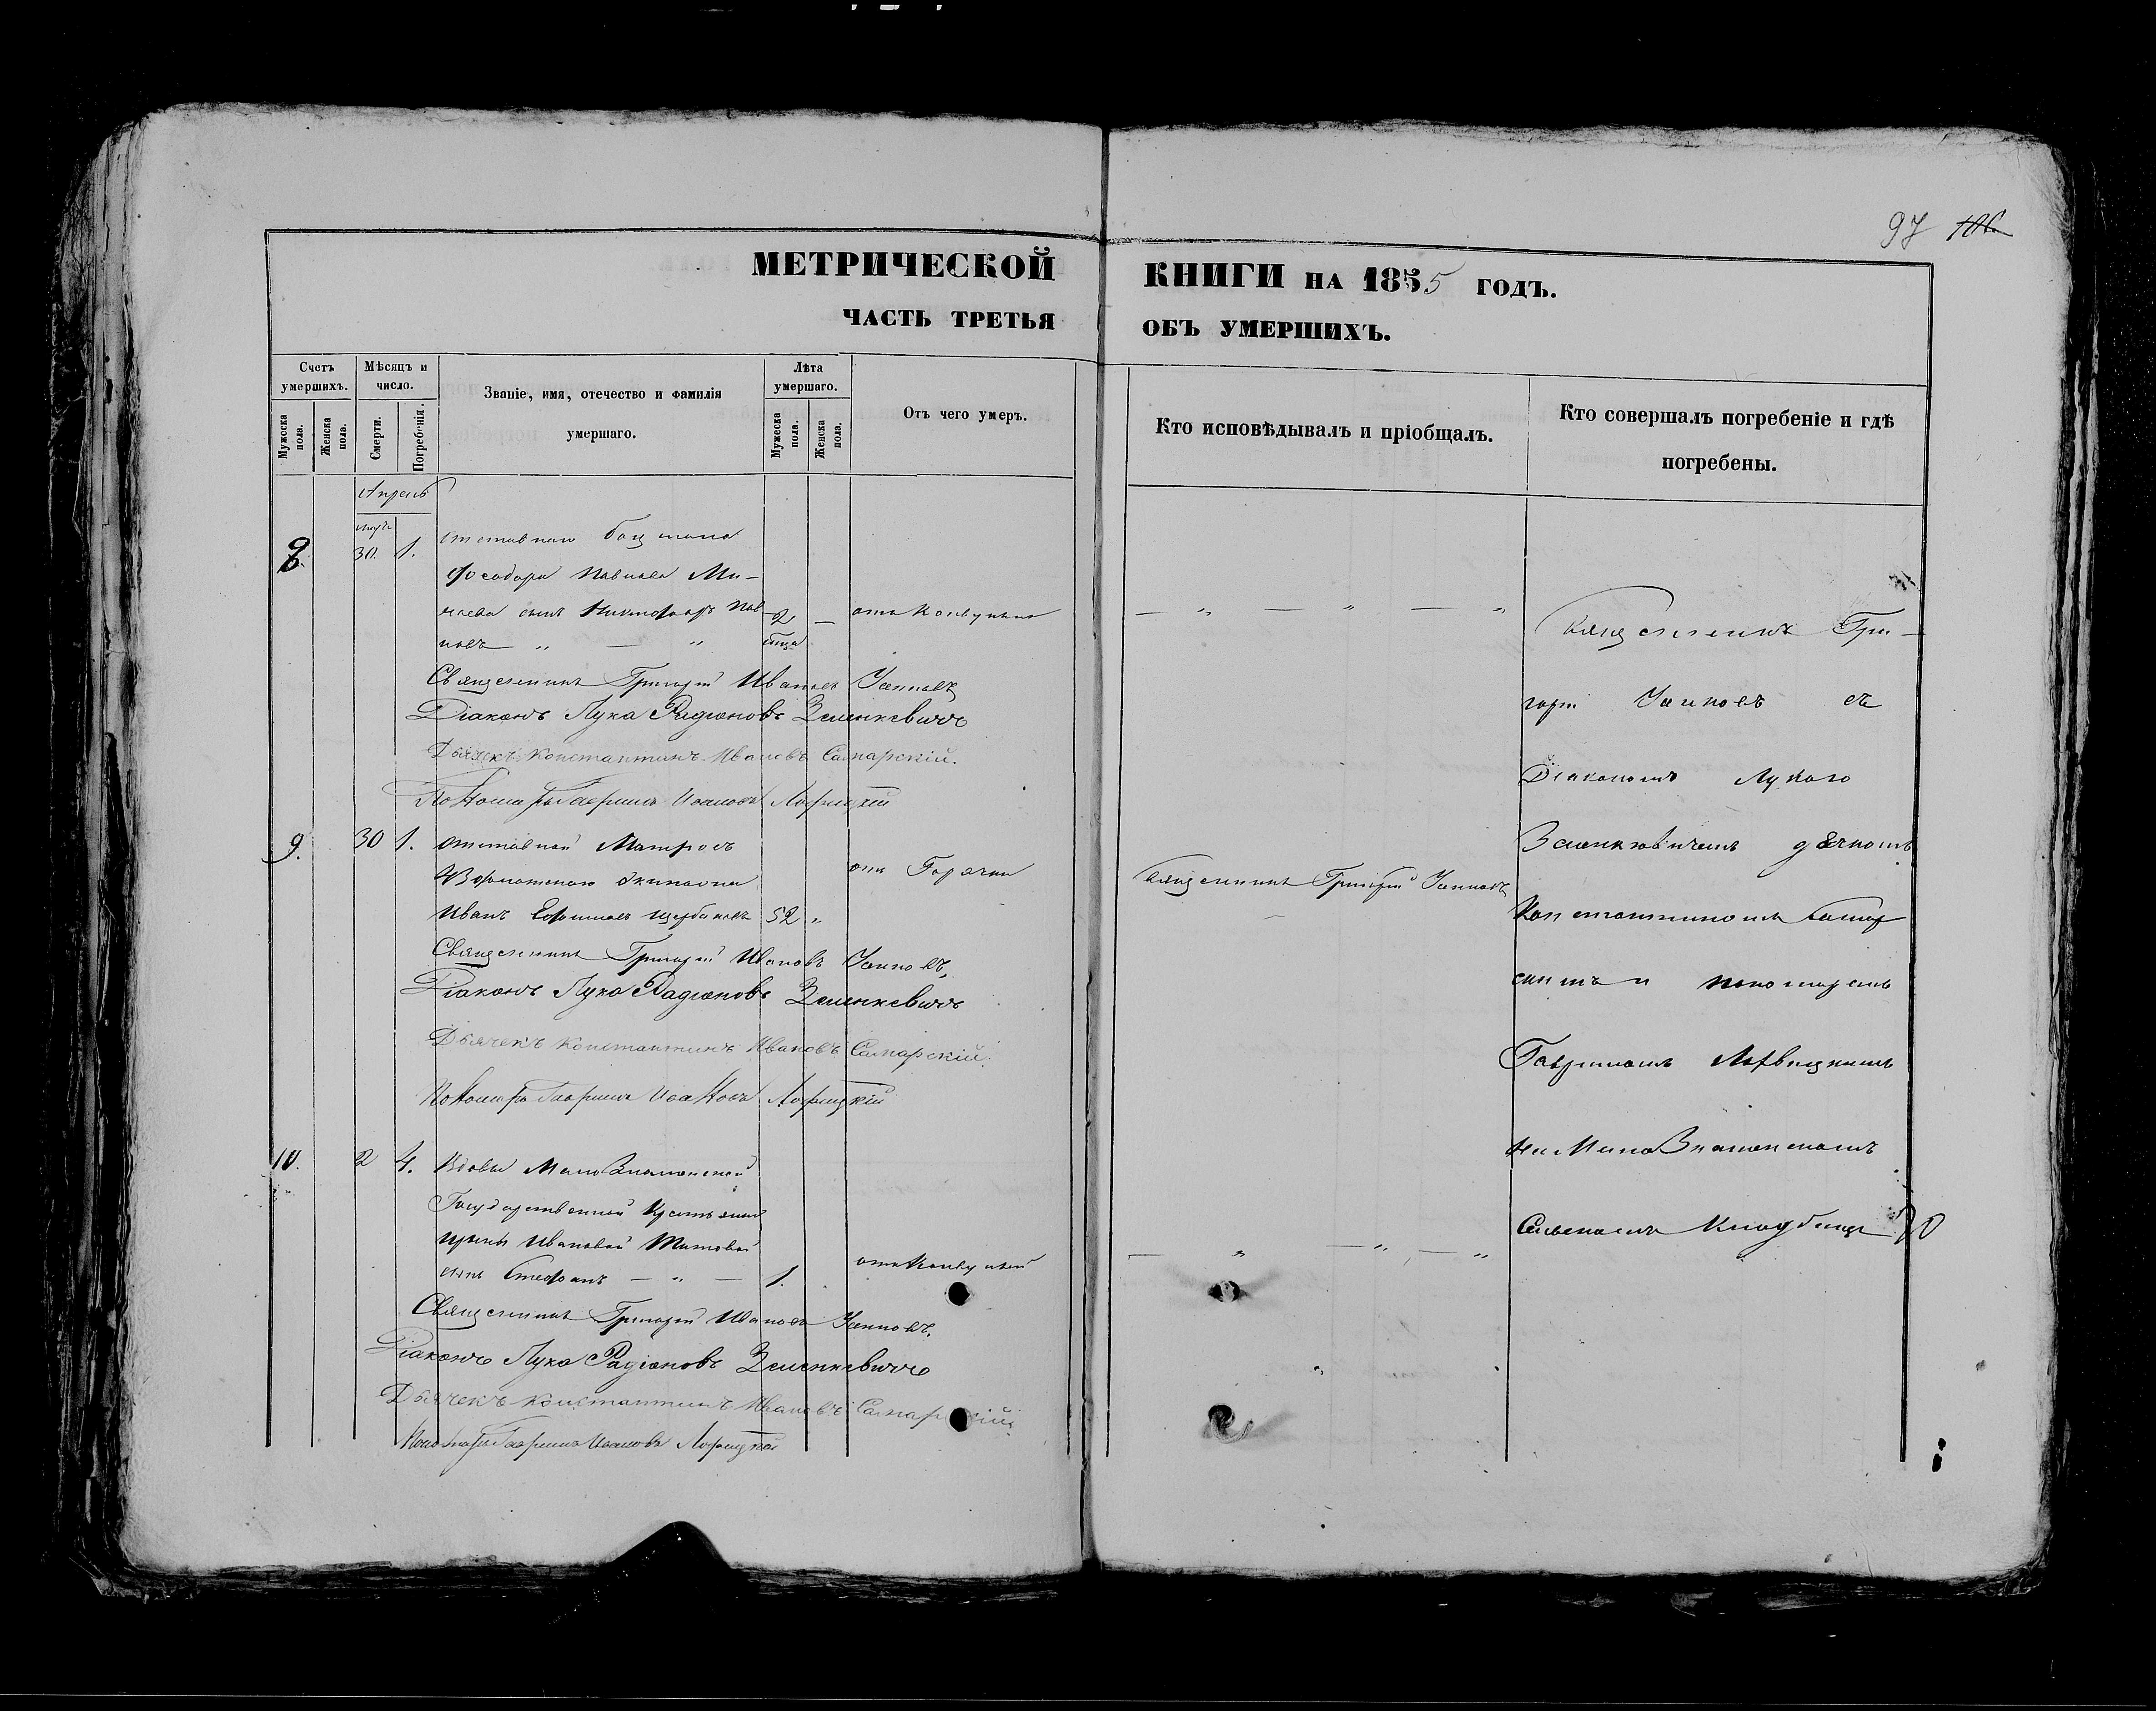 97 106
МЕТРИЧЕСКОЙ КНИГИ НА 1855 ГОДЪ.
ЧАСТЬ ТРЕТЬЯ ОБЪ УМЕРШИХЪ.
Счетъ умершихъ.
Мужеска пола.
Женска пола.
Мѣсяцъ и число.
Смерти.
Погребенія.
Званіе, имя, отечество и фамилія
умершаго.
Лѣта умершаго.
Мужеска пола.
Женска пола.
Отъ чего умеръ.
Кто исповѣдывалъ и пріобщалъ.
Кто совершалъ погребеніе и гдѣ
погребены.
Апрель
8. 30. 1.
отставнаго боцмана
Феодора Павлова Ми-
сынъ
2 — отъ конвульсіи
— „ — „ — „
Священникъ Григорій Ивановъ
Діаконъ Лука Радіоновъ Зеленкевичъ
Дьячекъ Константинъ Ивановъ Самарскій.
Пономарь Гавріилъ Ивановъ
9. 30 1. отставной Матросъ
экипажа
Иванъ Ефимовъ Щербаковъ 52 „
отъ Горячки
Священникъ Григорій
Священникъ Григорій Ивановъ
Діаконъ Лука Радіоновъ Зеленкевичъ
Дьячекъ Константинъ Ивановъ Самарскій.
Пономарь Гавріилъ Ивановъ
10. 2 4. Вдовы МалоЗнаменской
Государственной Крестьянки
Ирины Ивановой Титовой
сынъ Стефанъ — „ — 1.
отъ Конвульсій
— „ — „ — „
Священникъ Григорій Ивановъ
Діаконъ Лука Радіоновъ Зеленкевичъ
Дьячекъ Константинъ Ивановъ Самарскій
Пономарь Гавріилъ Ивановъ
Священникъ Гри-
горій съ
Діакономъ Лукою
Зеленкевичемъ дьячкомъ
Константиномъ Самар
скимъ и пономаремъ
Гавріиломъ
на МалоЗнаменскомъ
Сельскомъ Кладбищѣ